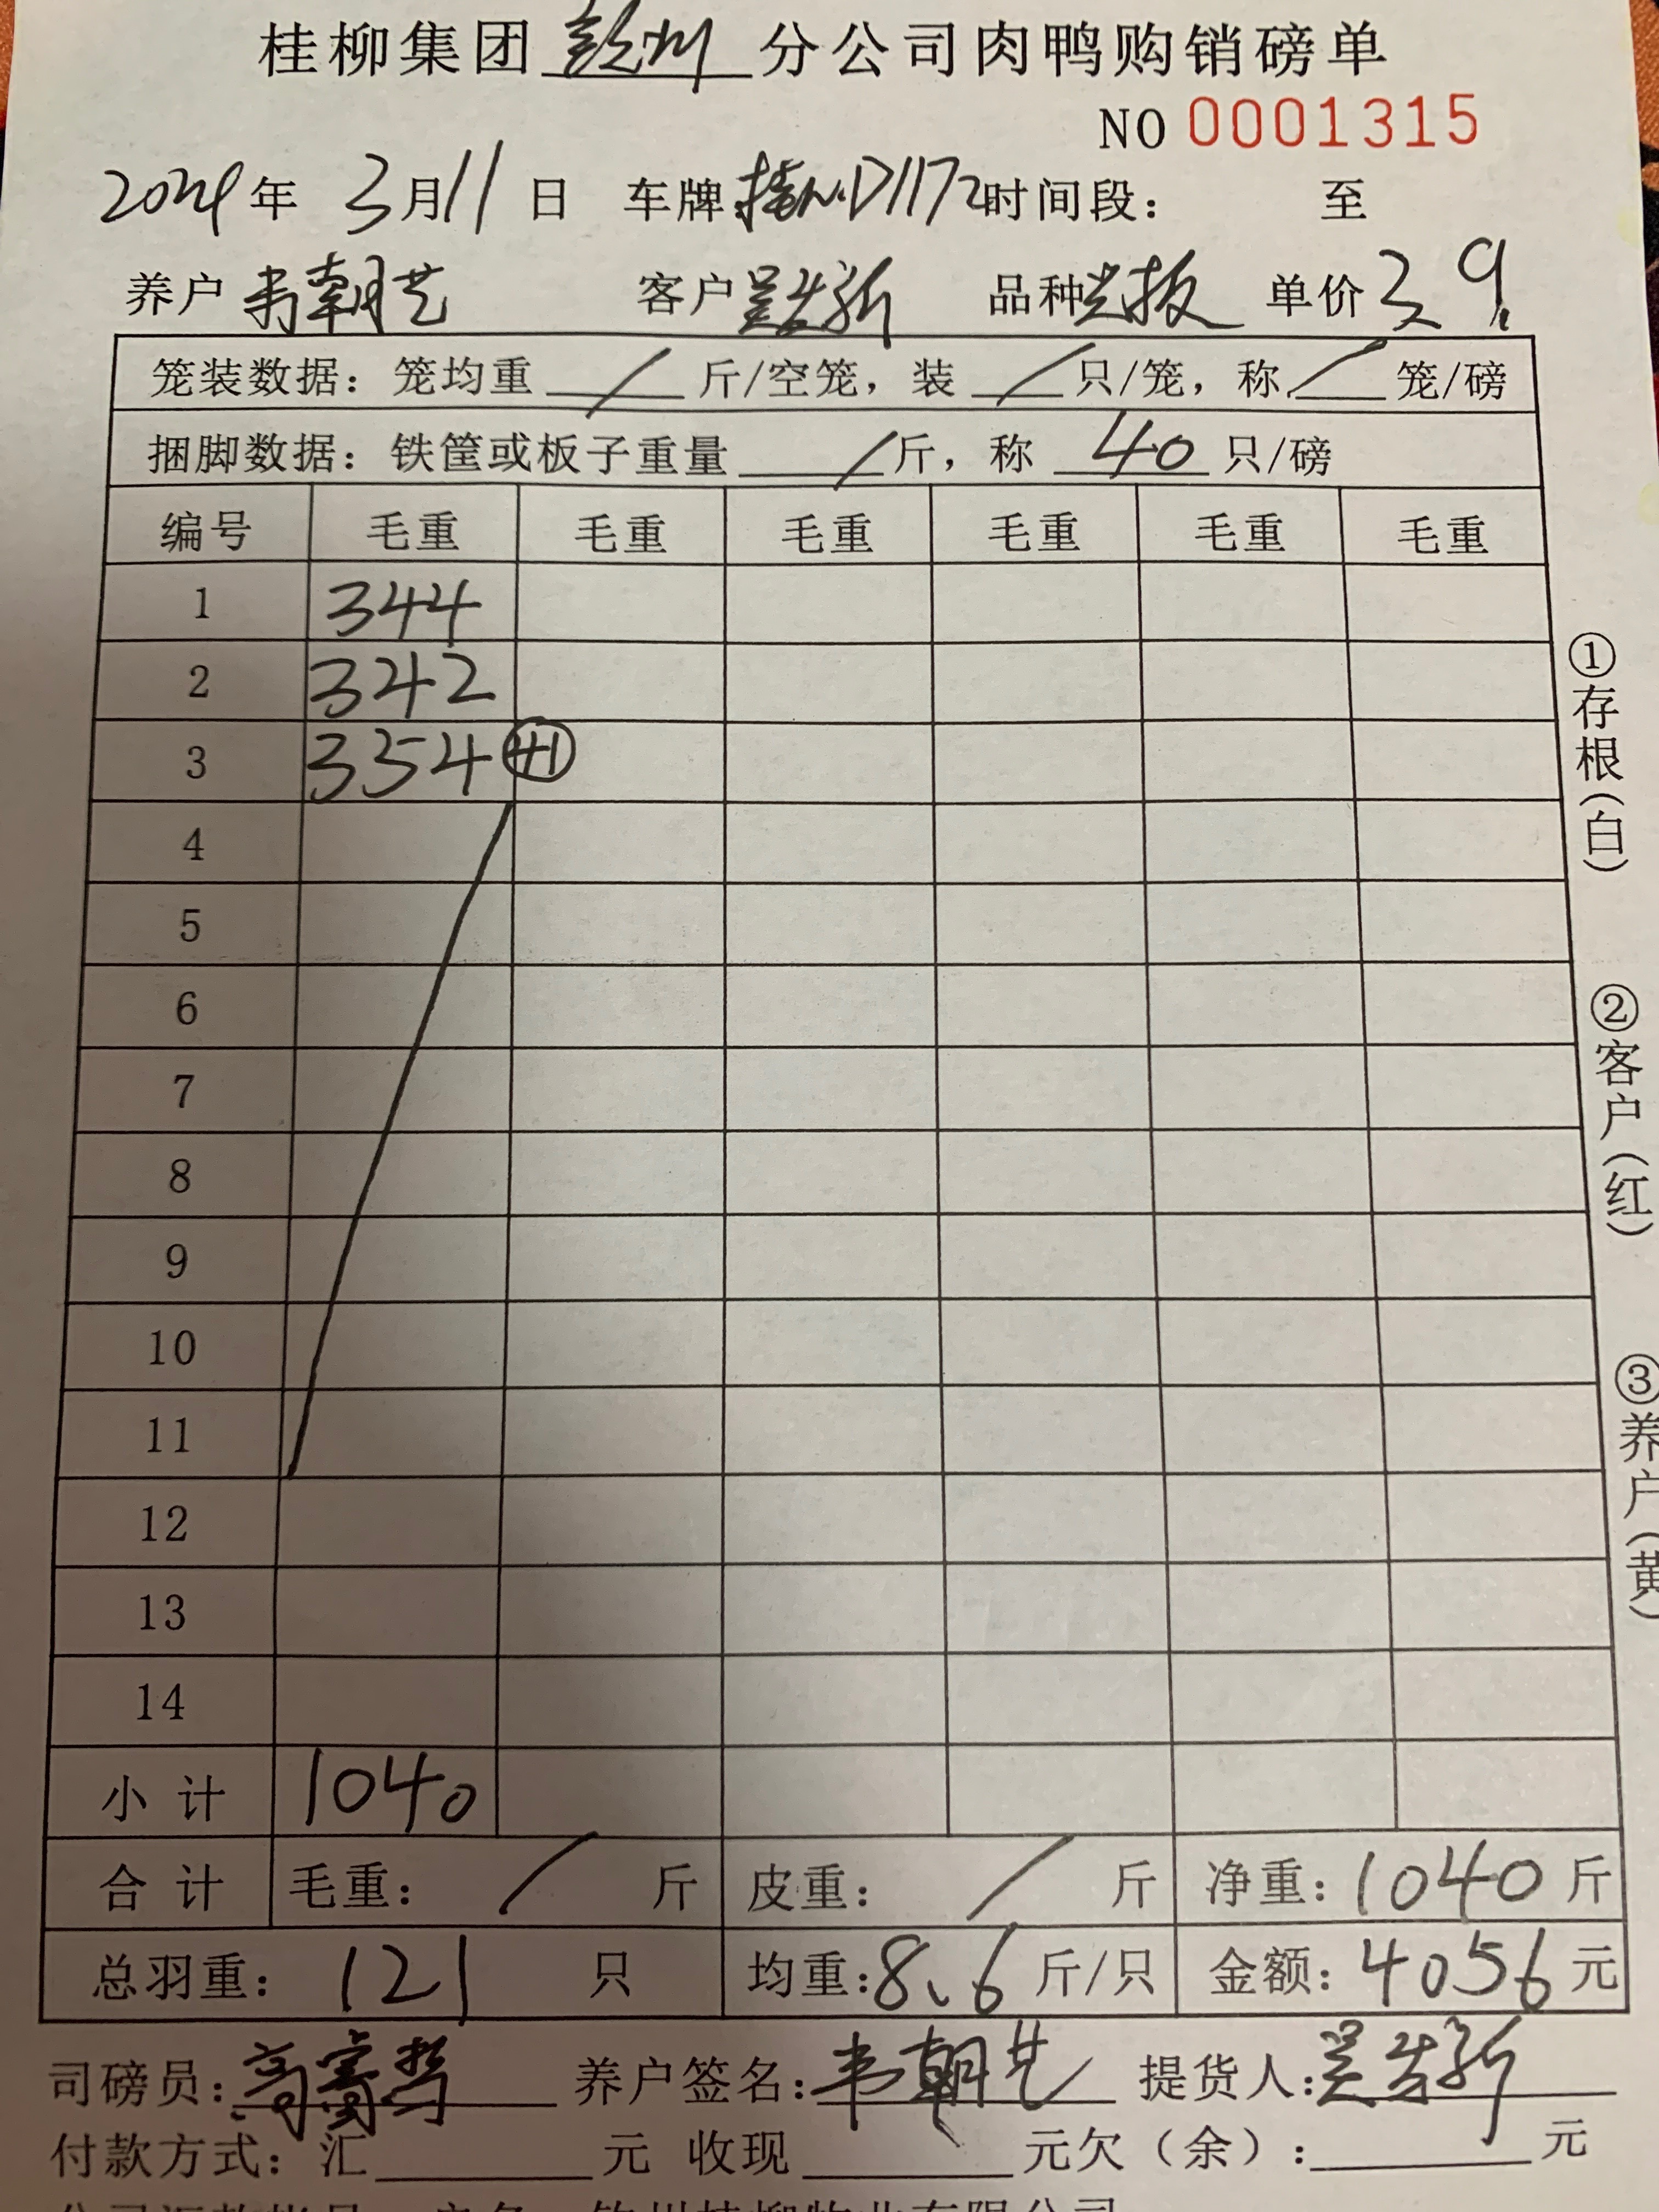 桂柳集团彭州分公司肉鸭购销磅单
NO 0001315
2024年 3月11日 车牌 D1172 时间段： 至
养户 韦朝艺 客户 吴 品种 光扳 单价 3.9
笼装数据：笼均重 / 斤/空笼，装 / 只/笼，称 / 笼/磅
捆脚数据：铁筐或板子重量 / 斤，称 40 只/磅
编号 毛重 毛重 毛重 毛重 毛重 毛重
1 344
2 342
3 354 41
4
5
6
7
8
9
10
11
12
13
14
小计 1040
合计 毛重： / 斤 皮重： / 斤 净重：1040斤
总羽重： 121 只 均重：8.6斤/只 金额：4056元
司磅员：高 养户签名：韦朝艺 提货人：吴
付款方式：汇 元 收现 元欠（余）： 元
①存根（白）
②客户（红）
③养户（黄）